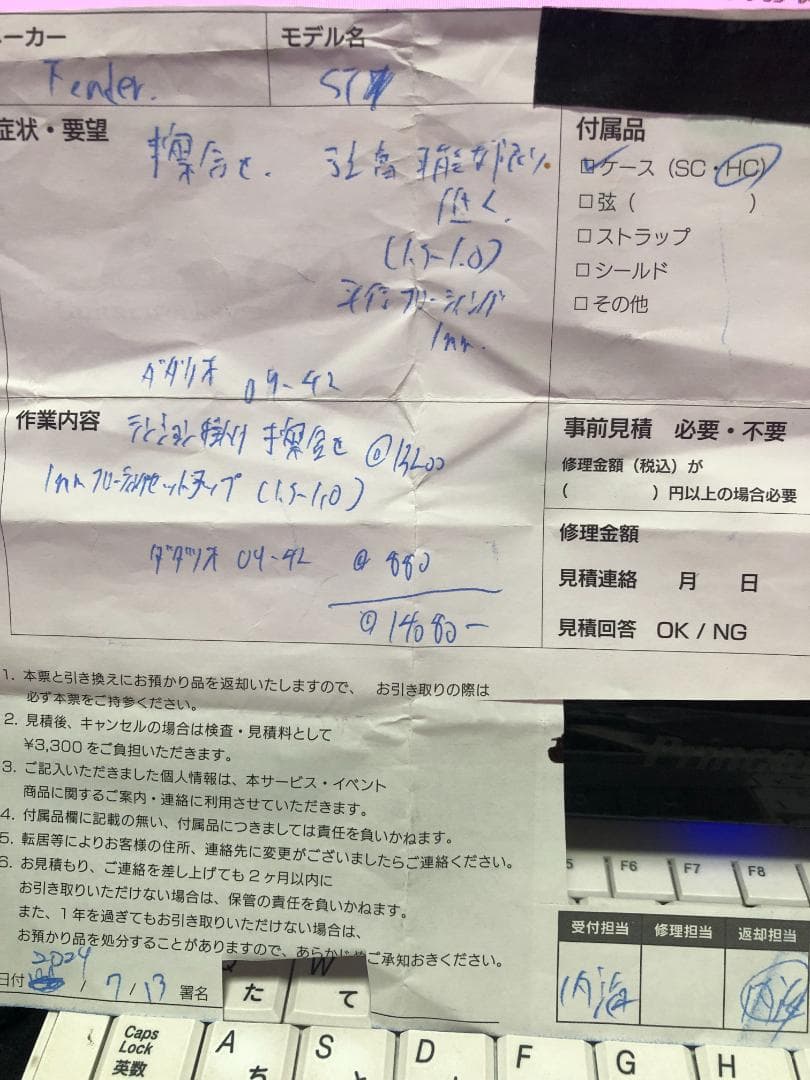 ーカー
モデル名
Fender.
ST
症状・要望
擦合せ. 弦高 可能な限り
低く.
(1.5-1.0)
平行フローティング
1mm.
ダダリオ 09-42
付属品
ケース (SC・HC)
□弦 ( )
□ストラップ
□シールド
□その他
作業内容
テンション掛け 擦合せ @13200
1mmフローティングセットアップ (1.5-1.0)
ダダリオ 09-42 @ 880
@ 14080-
事前見積 必要・不要
修理金額(税込)が
( )円以上の場合必要
修理金額
見積連絡 月 日
見積回答 OK / NG
1. 本票と引き換えにお預かり品を返却いたしますので、 お引き取りの際は
必ず本票をご持参ください。
2. 見積後、キャンセルの場合は検査・見積料として
¥3,300をご負担いただきます。
3. ご記入いただきました個人情報は、本サービス・イベント
商品に関するご案内・連絡に利用させていただきます。
4. 付属品欄に記載の無い、付属品につきましては責任を負いかねます。
5. 転居等によりお客様の住所、連絡先に変更がございましたらご連絡ください。
6. お見積もり、ご連絡を差し上げても2ヶ月以内に
お引き取りいただけない場合は、保管の責任を負いかねます。
また、1年を過ぎてもお引き取りいただけない場合は、
お預かり品を処分することがありますので、あらかじめご承知おきください。
日付 2024 / 7 / 13 署名
受付担当 修理担当 返却担当
内海 内海
5 F6 F7 F8
Q W
た て
Caps Lock 英数
A S D F G H
ち と